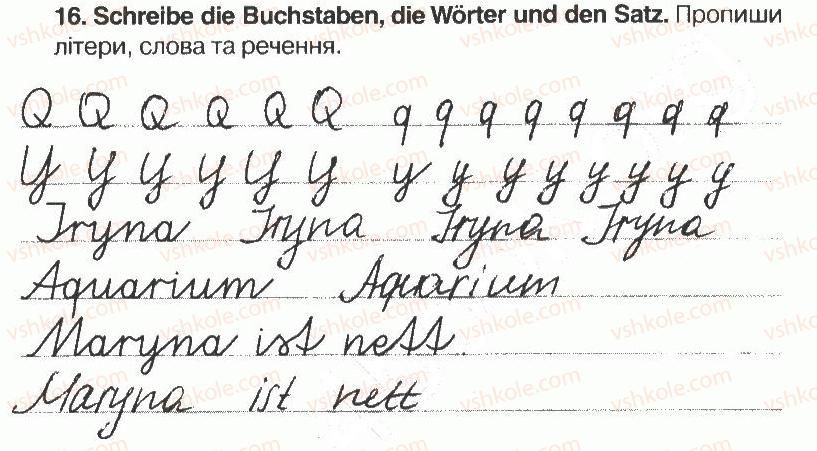 16. Schreibe die Buchstaben, die Wörter und den Satz. Пропиши
літери, слова та речення.
Q Q Q Q Q Q q q q q q q q q
Y Y Y Y Y Y y y y y y y y y
Iryna Iryna Iryna Iryna
Aquarium Aquarium
Maryna ist nett.
Maryna ist nett